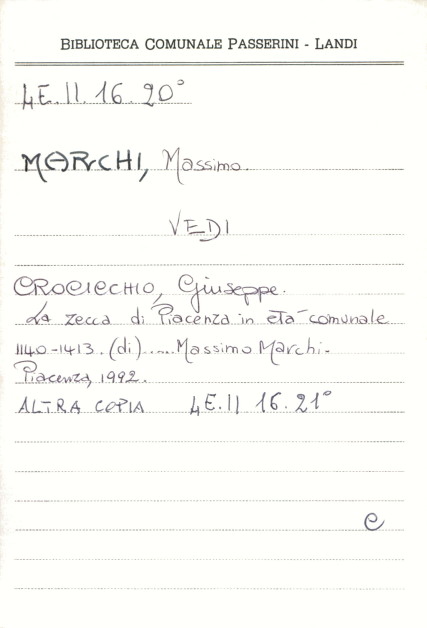 BIBLIOTECA COMUNALE PASSERINI - LANDI
4E.II.16.20°
MARCHI, Massimo.
VEDI
CROCICCHIO, Giuseppe.
La zecca di Piacenza in età comunale
1140-1413. (di)..... Massimo Marchi.
Piacenza, 1992.
ALTRA COPIA 4E.II 16.21°
C